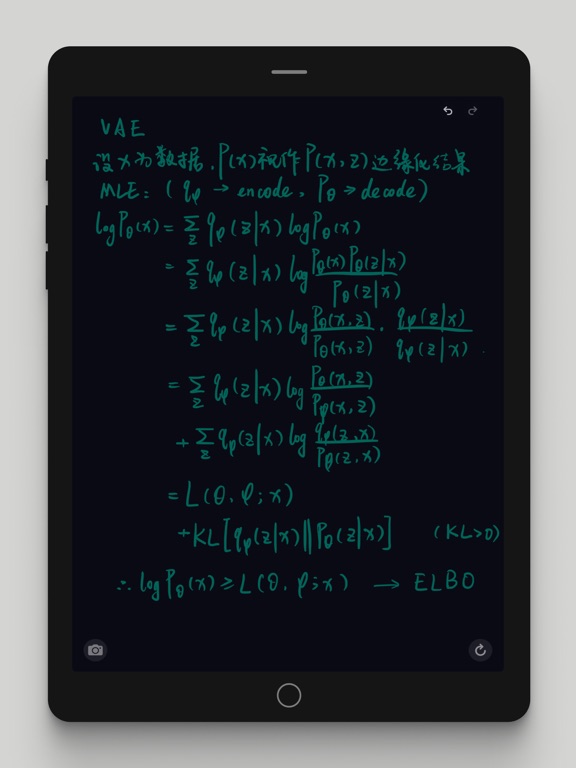 VAE
设x为数据,P(x)视作P(x,z)边缘化结果
MLE:(qφ → encode, Pθ → decode)
logPθ(x) = Σz qφ(z|x) logPθ(x)
= Σz qφ(z|x) log Pθ(x)Pθ(z|x) / Pθ(z|x)
= Σz qφ(z|x) log Pθ(x,z) / Pθ(x,z) · qφ(z|x) / qφ(z|x)
= Σz qφ(z|x) log Pθ(x,z) / Pφ(x,z)
+ Σz qφ(z|x) log qφ(z,x) / Pθ(z,x)
= L(θ, φ; x)
+ KL[qφ(z|x) || Pθ(z|x)] (KL>0)
∴ logPθ(x) ≥ L(θ, φ; x) → ELBO